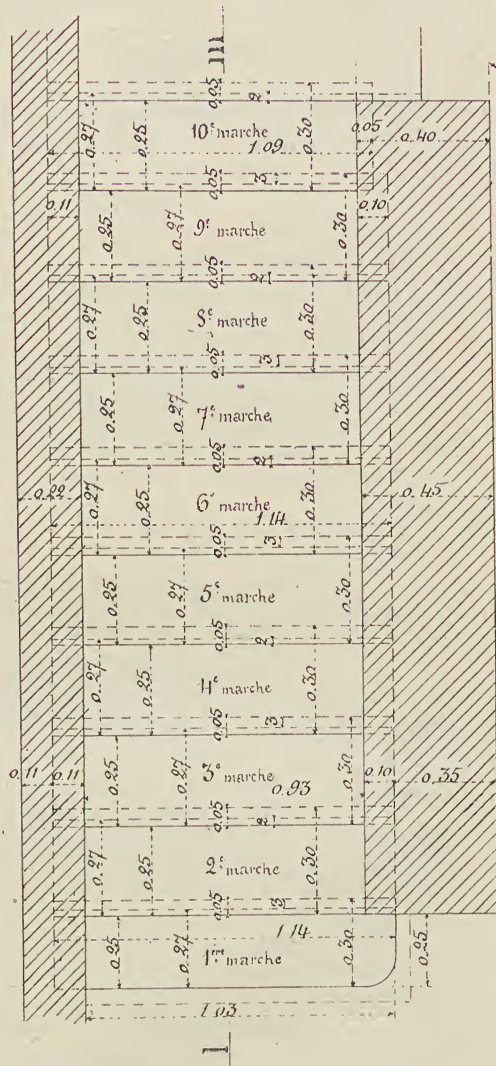 III
0.05 2
0.27 0.25 10e marche 0.30 0.05 0.40
1.09
0.05 3
0.11 0.10
0.25 0.27 9e marche 0.30
0.05 2
0.27 0.25 8e marche 0.30
0.05 3
0.25 0.27 7e marche 0.30
0.05 2
0.22 0.27 0.25 6e marche 0.30 0.45
1.14
0.05 3
0.25 0.27 5e marche 0.30
0.05 2
0.27 0.25 4e marche 0.30
0.05 3
0.11 0.11 0.25 0.27 3e marche 0.30 0.10 0.35
0.93
0.05 2
0.27 0.25 2e marche 0.30
0.05 3
1.14
0.25 0.27 1ère marche 0.30 0.25
1.03
I